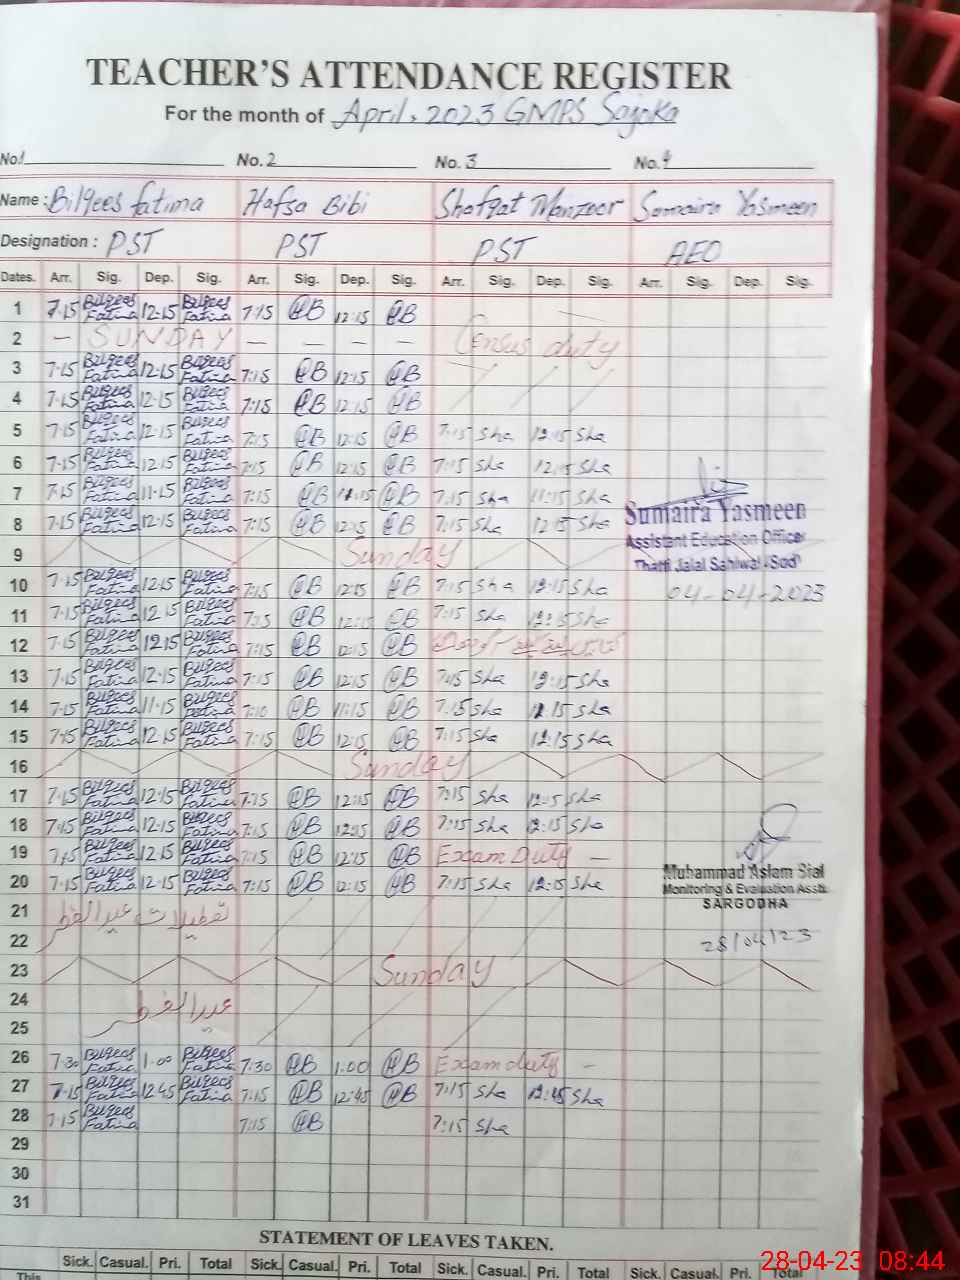 TEACHER'S ATTENDANCE REGISTER
For the month of April, 2023 GMPS Sajoka
No.1 No. 2 No. 3 No. 4
Name : Bilqees fatima Hafsa Bibi Shafqat Manzoor Sumaira Yasmeen
Designation : PST PST PST AEO
Dates. Arr. Sig. Dep. Sig. Arr. Sig. Dep. Sig. Arr. Sig. Dep. Sig. Arr. Sig. Dep. Sig.
1 7-15 Bilqees Fatima 12-15 Bilqees Fatima 7:15 HB 12:15 HB
2 — SUNDAY — — — — Census duty
3 7-15 Bilqees Fatima 12-15 Bilqees Fatima 7:15 HB 12:15 HB
4 7-15 Bilqees Fatima 12-15 Bilqees Fatima 7:15 HB 12:15 HB
5 7-15 Bilqees Fatima 12-15 Bilqees Fatima 7:15 HB 12:15 HB 7:15 Sha 12:15 Sha
6 7-15 Bilqees Fatima 12-15 Bilqees Fatima 7:15 HB 12:15 HB 7:15 Sha 12:15 Sha
7 7-15 Bilqees Fatima 11-15 Bilqees Fatima 7:15 HB 11:15 HB 7:15 Sha 11:15 Sha
8 7-15 Bilqees Fatima 12-15 Bilqees Fatima 7:15 HB 12:15 HB 7:15 Sha 12:15 Sha
Sumaira Yasmeen
Assistant Education Officer
Thatti Jalal Sahiwal (Sgd)
04-04-2023
9 Sunday
10 7-15 Bilqees Fatima 12-15 Bilqees Fatima 7:15 HB 12:15 HB 7:15 Sha 12:15 Sha
11 7-15 Bilqees Fatima 12-15 Bilqees Fatima 7:15 HB 12:15 HB 7:15 Sha 12:15 Sha
12 7-15 Bilqees Fatima 12-15 Bilqees Fatima 7:15 HB 12:15 HB
13 7-15 Bilqees Fatima 12-15 Bilqees Fatima 7:15 HB 12:15 HB 7:15 Sha 12:15 Sha
14 7-15 Bilqees Fatima 11-15 Bilqees Fatima 7:10 HB 11:15 HB 7:15 Sha 11:15 Sha
15 7-15 Bilqees Fatima 12-15 Bilqees Fatima 7:15 HB 12:15 HB 7:15 Sha 12:15 Sha
16 Sunday
17 7-15 Bilqees Fatima 12-15 Bilqees Fatima 7:15 HB 12:15 HB 7:15 Sha 12:15 Sha
18 7-15 Bilqees Fatima 12-15 Bilqees Fatima 7:15 HB 12:15 HB 7:15 Sha 12:15 Sha
19 7-15 Bilqees Fatima 12-15 Bilqees Fatima 7:15 HB 12:15 HB Exam Duty —
20 7-15 Bilqees Fatima 12-15 Bilqees Fatima 7:15 HB 12:15 HB 7:15 Sha 12:15 Sha
Muhammad Aslam Sial
Monitoring & Evaluation Asstt.
SARGODHA
28/04/23
21 تعطیلات عیدالفطر
22
23 Sunday
24 عیدالفطر
25
26 7-30 Bilqees Fatima 1-00 Bilqees Fatima 7:30 HB 1:00 HB Exam duty —
27 7-15 Bilqees Fatima 12-45 Bilqees Fatima 7:15 HB 12:45 HB 7:15 Sha 12:45 Sha
28 7-15 Bilqees Fatima 7:15 HB 7:15 Sha
29
30
31
STATEMENT OF LEAVES TAKEN.
Sick. Casual. Pri. Total Sick. Casual. Pri. Total Sick. Casual. Pri. Total Sick. Casual. Pri. Total
This
28-04-23 08:44